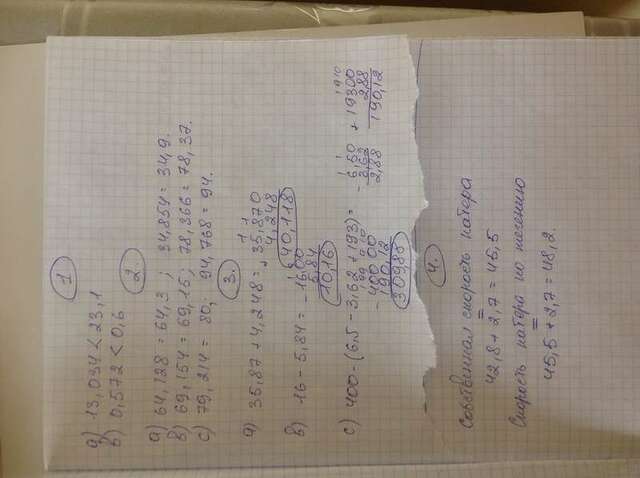 1
а) 13,034 < 23,1
в) 0,572 < 0,6
2.
а) 64,128 = 64,3 ; 34,854 = 34,9.
в) 69,154 = 69,15; 78,366 = 78,37.
с) 79,214 = 80; 94,768 = 94.
3.
а) 35,87 + 4,248 =
1 1
+ 35,870
4,248
40,118
в) 16 - 5,84 =
- 16,00
5,84
10,16
с) 400 - (6,5 - 3,62 + 193) =
- 400 00
190,12
309,88
1 1
- 6,50
3,62
2,88
1910
+ 19300
2,88
190,12
4.
Собственная скорость катера
=
42,8 + 2,7 = 45,5
Скорость катера по течению
=
45,5 + 2,7 = 48,2.